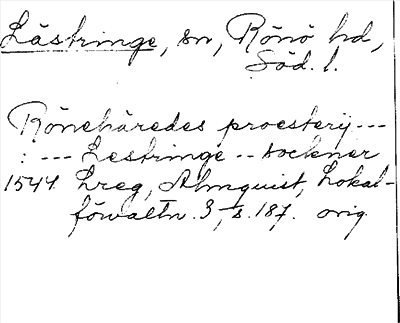 Lästringe, sn, Rönö hd,
Söd. l.
Röneháredes proesterij ---
: --- Lestringe -- sockner
1544 Lreg, Almquist, Lokal-
förvaltn. 3, s. 187. orig.